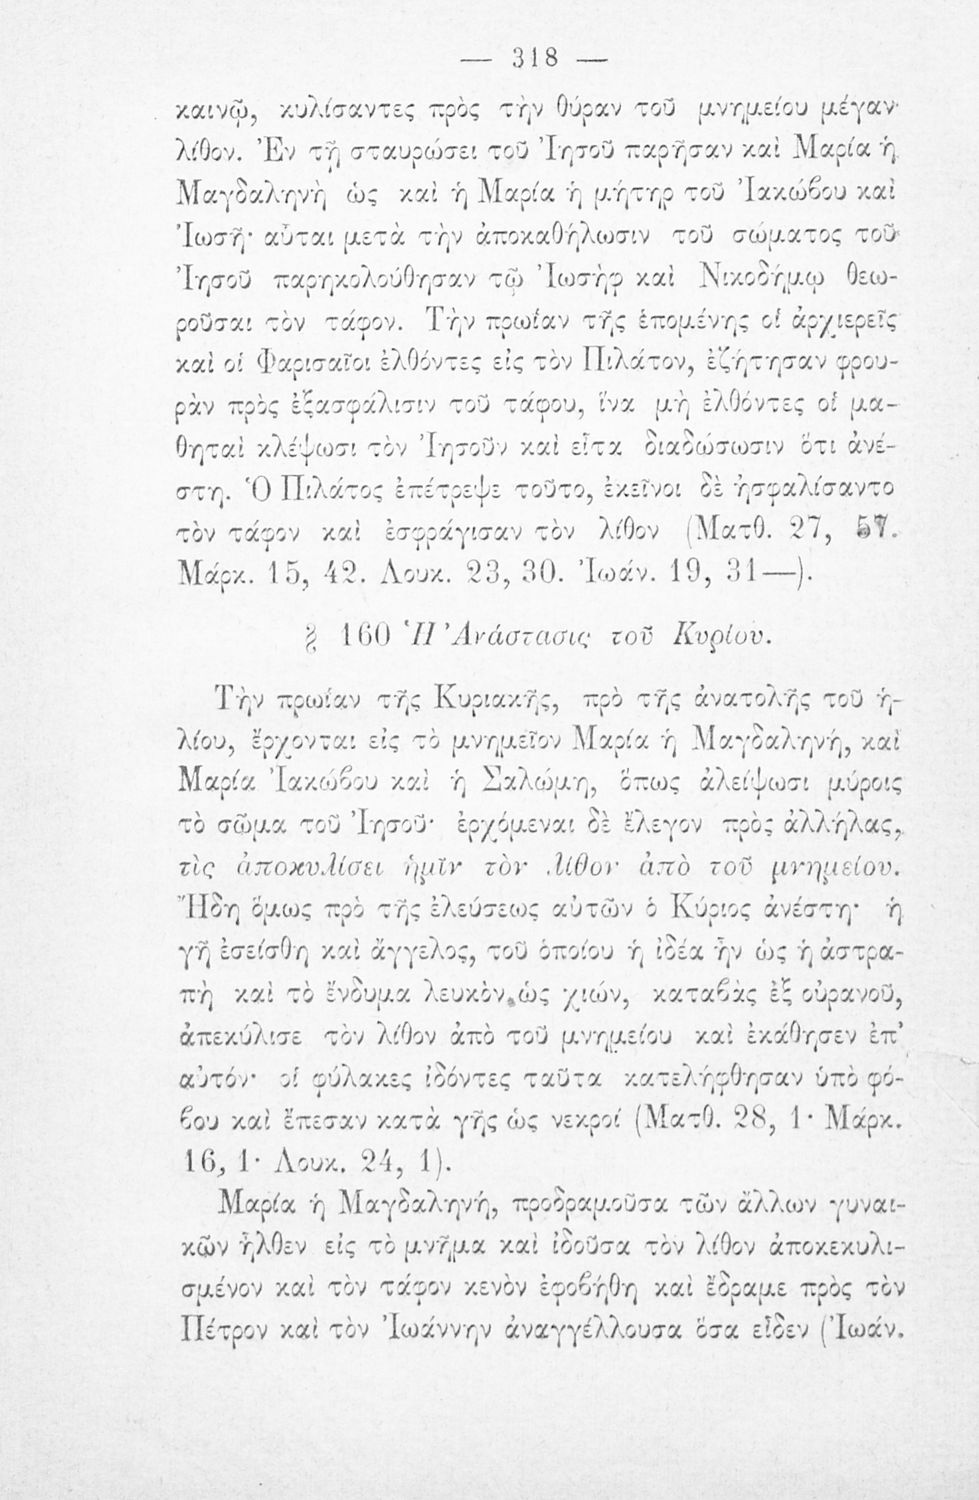 — 318 —
καινῷ, κυλίσαντες πρὸς τὴν θύραν τοῦ μνημείου μέγαν
λίθον. Ἐν τῇ σταυρώσει τοῦ Ἰησοῦ παρῆσαν καὶ Μαρία ἡ
Μαγδαληνὴ ὡς καὶ ἡ Μαρία ἡ μήτηρ τοῦ Ἰακώβου καὶ
Ἰωσῆ· αὗται μετὰ τὴν ἀποκαθήλωσιν τοῦ σώματος τοῦ
Ἰησοῦ παρηκολούθησαν τῷ Ἰωσὴφ καὶ Νικοδήμῳ θεω-
ροῦσαι τὸν τάφον. Τὴν πρωΐαν τῆς ἑπομένης οἱ ἀρχιερεῖς
καὶ οἱ Φαρισαῖοι ἐλθόντες εἰς τὸν Πιλάτον, ἐζήτησαν φρου-
ρὰν πρὸς ἐξασφάλισιν τοῦ τάφου, ἵνα μὴ ἐλθόντες οἱ μα-
θηταὶ κλέψωσι τὸν Ἰησοῦν καὶ εἶτα διαδώσωσιν ὅτι ἀνέ-
στη. Ὁ Πιλάτος ἐπέτρεψε τοῦτο, ἐκεῖνοι δὲ ἠσφαλίσαντο
τὸν τάφον καὶ ἐσφράγισαν τὸν λίθον (Ματθ. 27, 57.
Μάρκ. 15, 42. Λουκ. 23, 30. Ἰωάν. 19, 31—).
§ 160 Ἡ Ἀνάστασις τοῦ Κυρίου.
Τὴν πρωΐαν τῆς Κυριακῆς, πρὸ τῆς ἀνατολῆς τοῦ ἡ-
λίου, ἔρχονται εἰς τὸ μνημεῖον Μαρία ἡ Μαγδαληνή, καὶ
Μαρία Ἰακώβου καὶ ἡ Σαλώμη, ὅπως ἀλείψωσι μύροις
τὸ σῶμα τοῦ Ἰησοῦ· ἐρχόμεναι δὲ ἔλεγον πρὸς ἀλλήλας,
τὶς ἀποκυλίσει ἡμῖν τὸν λίθον ἀπὸ τοῦ μνημείου.
Ἤδη ὅμως πρὸ τῆς ἐλεύσεως αὐτῶν ὁ Κύριος ἀνέστη· ἡ
γῆ ἐσείσθη καὶ ἄγγελος, τοῦ ὁποίου ἡ ἰδέα ἦν ὡς ἡ ἀστρα-
πὴ καὶ τὸ ἔνδυμα λευκὸν ὡς χιών, καταβὰς ἐξ οὐρανοῦ,
ἀπεκύλισε τὸν λίθον ἀπὸ τοῦ μνημείου καὶ ἐκάθησεν ἐπ’
αὐτόν· οἱ φύλακες ἰδόντες ταῦτα κατελήφθησαν ὑπὸ φό-
βου καὶ ἔπεσαν κατὰ γῆς ὡς νεκροί (Ματθ. 28, 1· Μάρκ.
16, 1· Λουκ. 24, 1).
Μαρία ἡ Μαγδαληνή, προδραμοῦσα τῶν ἄλλων γυναι-
κῶν ἦλθεν εἰς τὸ μνῆμα καὶ ἰδοῦσα τὸν λίθον ἀποκεκυλι-
σμένον καὶ τὸν τάφον κενὸν ἐφοβήθη καὶ ἔδραμε πρὸς τὸν
Πέτρον καὶ τὸν Ἰωάννην ἀναγγέλλουσα ὅσα εἶδεν (Ἰωάν.